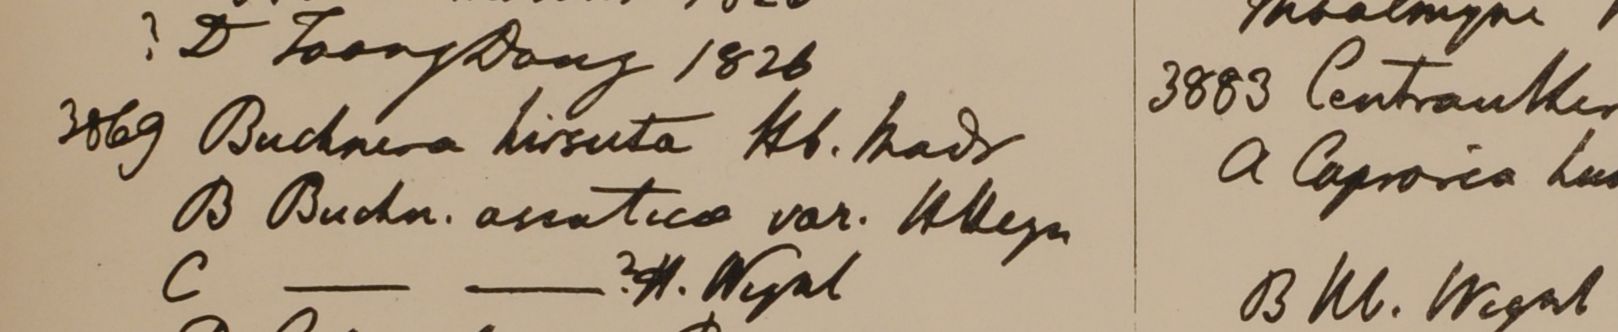 ? D Toong Dong 1826
3869 Buchnera hirsuta Hb. Madr
B Buchn. assatica var. HHeyn
C — — ? H. Wight
3883 Centranther
a Capraria
B Hb. Wight